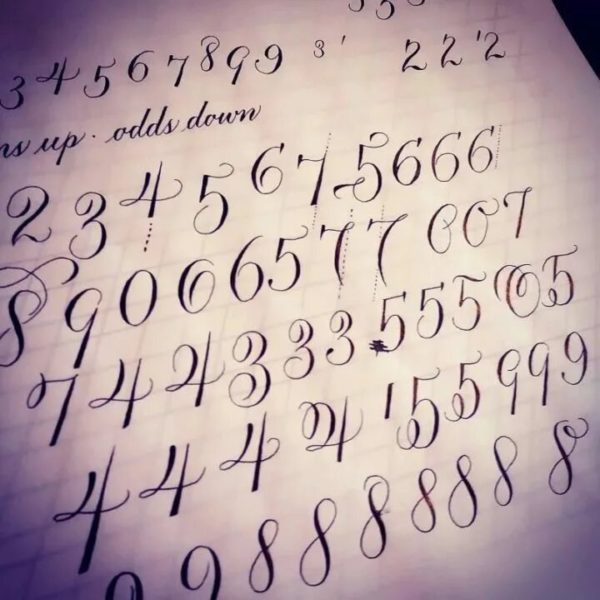 5 5
3 4 5 6 7 8 9 9 3 ' 2 2 '2
ns up . odds down
2 3 4 5 6 7 5 6 6 6
8 9 0 0 6 5 7 7 6 0 7
7 4 4 3 3 3 5 5 5 6 5
4 4 4 4 '5 5 9 9 9
9 9 8 8 8 8 8 8 8